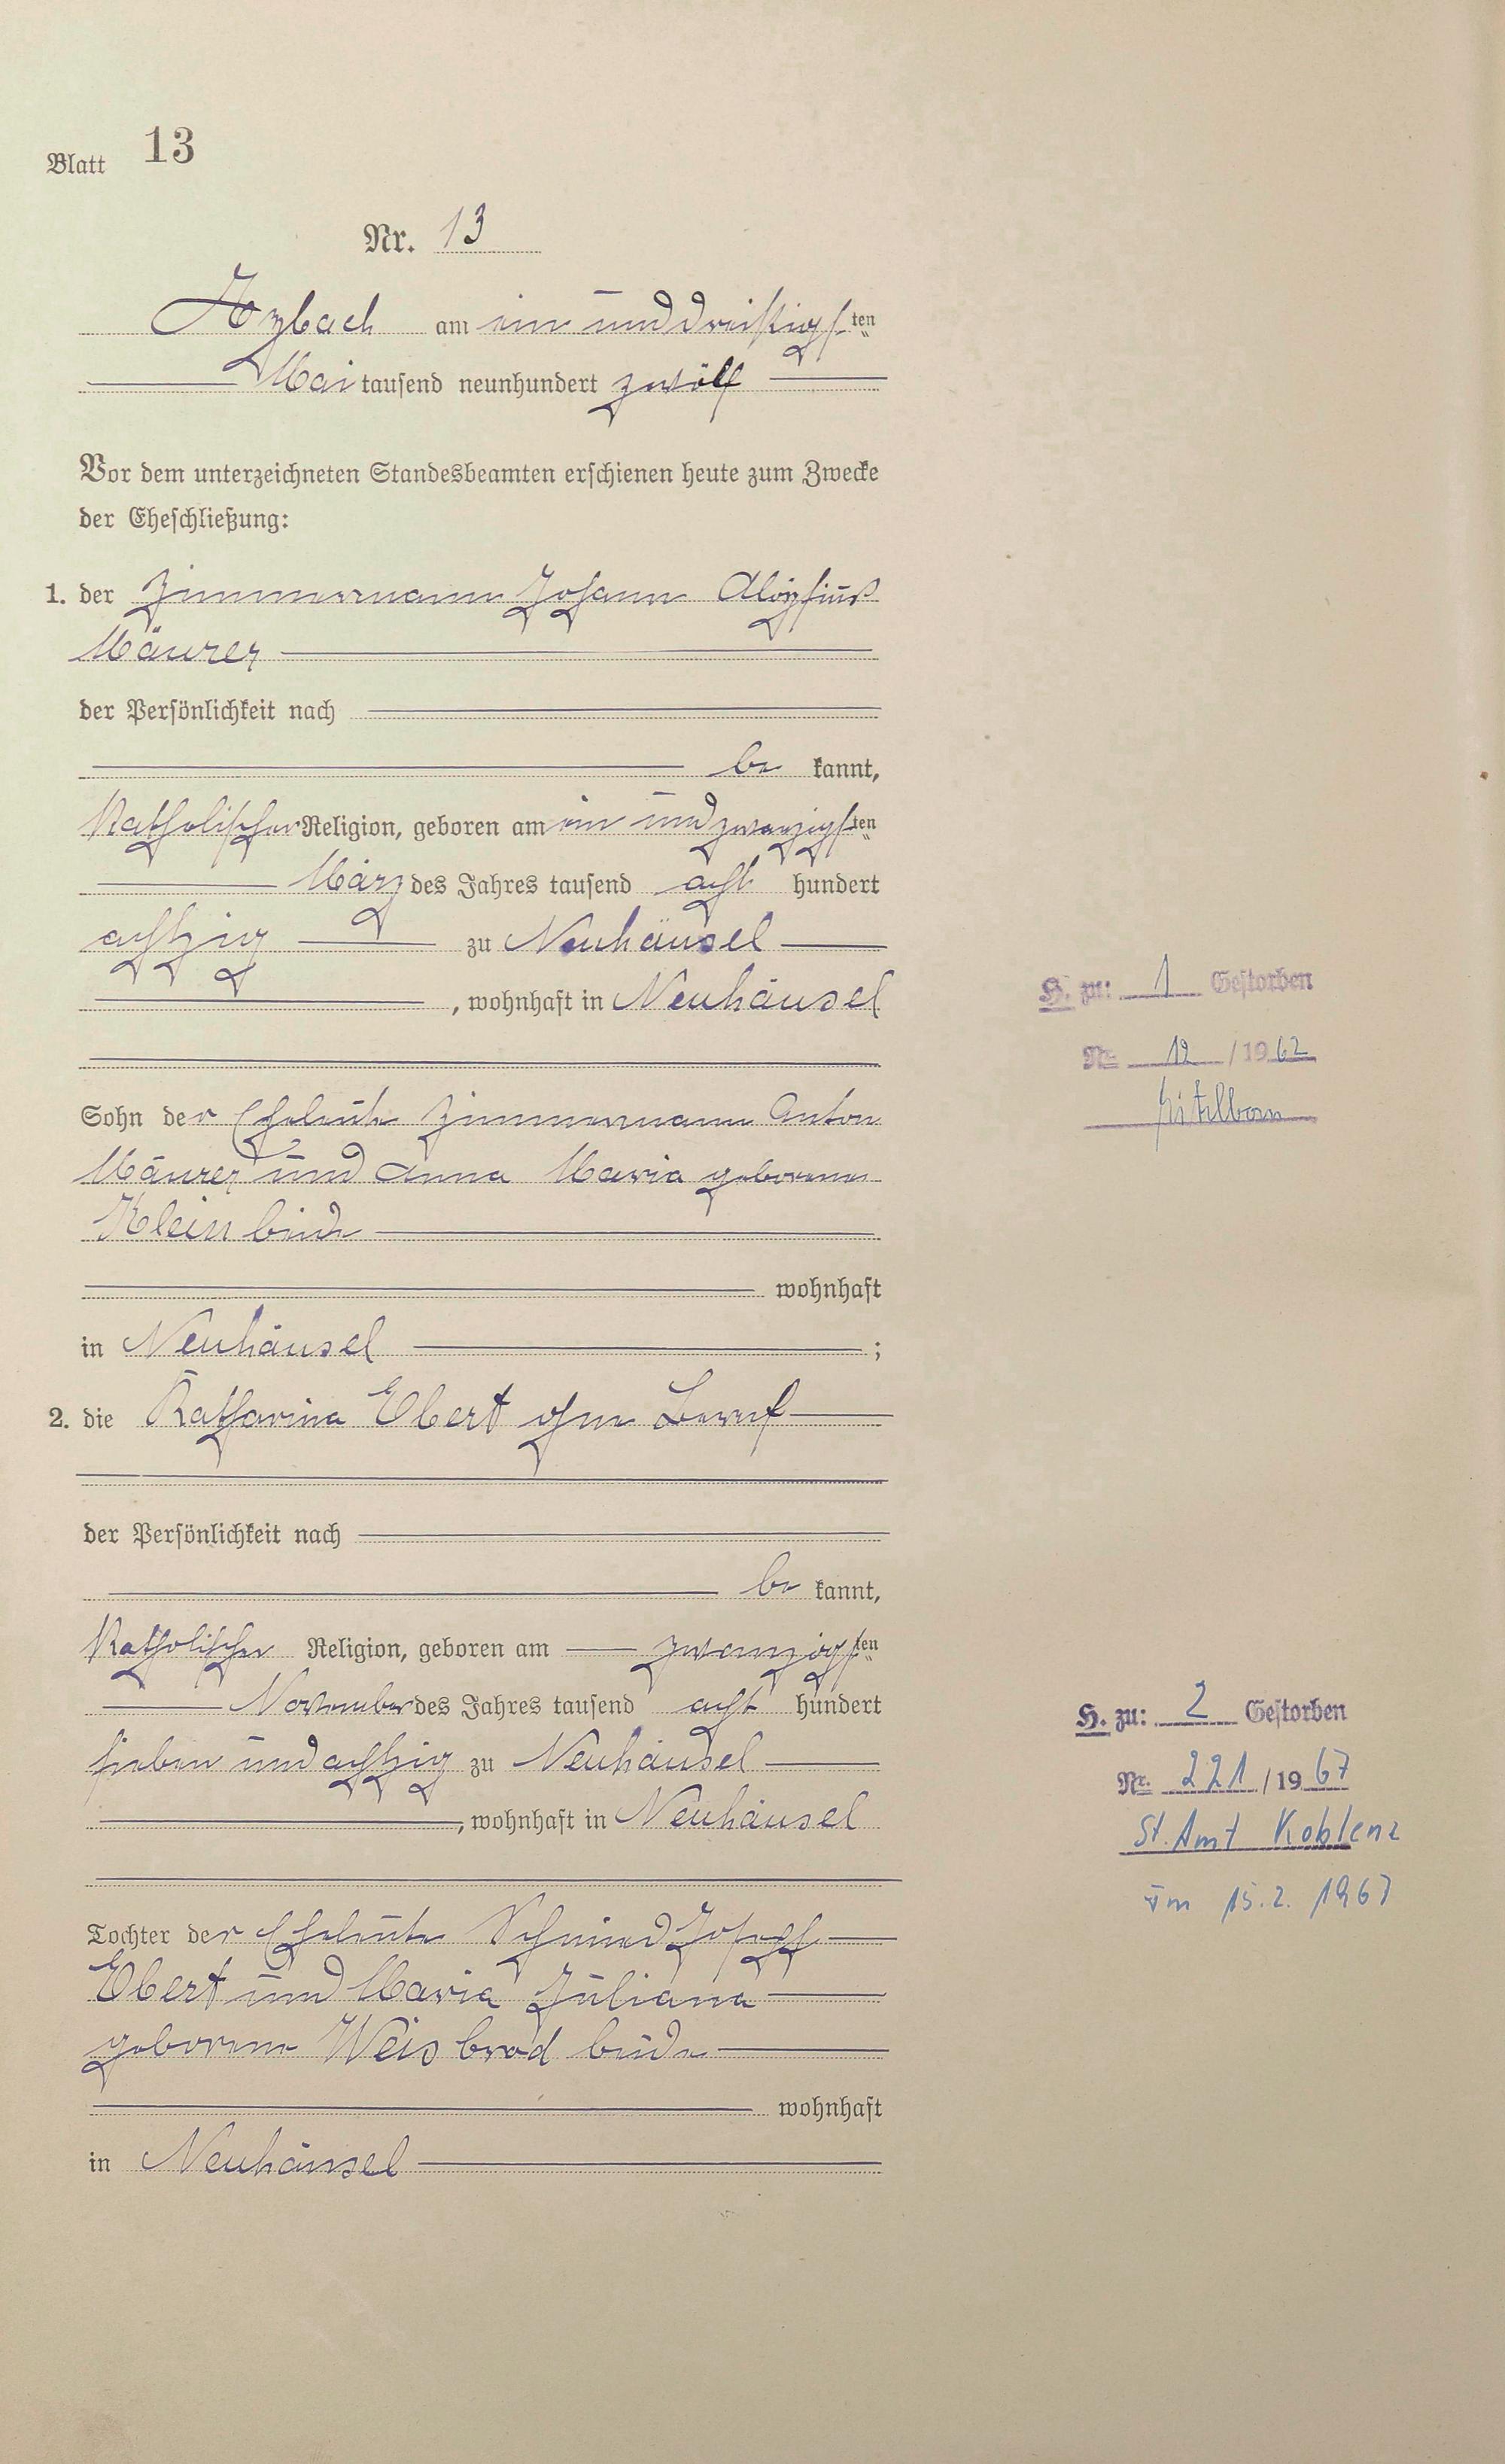 Blatt 13
Nr. 13
Arzbach am ein und dreißigsten
Mai tausend neunhundert zwölf
Vor dem unterzeichneten Standesbeamten erschienen heute zum Zwecke
der Eheschließung:
1. der Zimmermann Johann Aloysius
Mäurer
der Persönlichkeit nach
be kannt,
Katholischer Religion, geboren am ein und zwanzigsten
März des Jahres tausend acht hundert
achtzig zu Neuhäusel
, wohnhaft in Neuhäusel
H. zu: 1 Gestorben
Nr. 12 / 1962
Eitelborn
Sohn der Eheleute Zimmermann Anton
Mäurer und Anna Maria geborenen
Klein beide
wohnhaft
in Neuhäusel ;
2. die Katharina Ebert ohne Beruf
der Persönlichkeit nach
be kannt,
Katholischer Religion, geboren am zwanzigsten
November des Jahres tausend acht hundert
sieben und achtzig zu Neuhäusel
, wohnhaft in Neuhäusel
H. zu: 2 Gestorben
Nr. 221 / 1967
St. Amt Koblenz
am 15.2. 1967
Tochter der Eheleute Schmied Joseph
Ebert und Maria Juliana
geborene Weisbrod beide
wohnhaft
in Neuhäusel